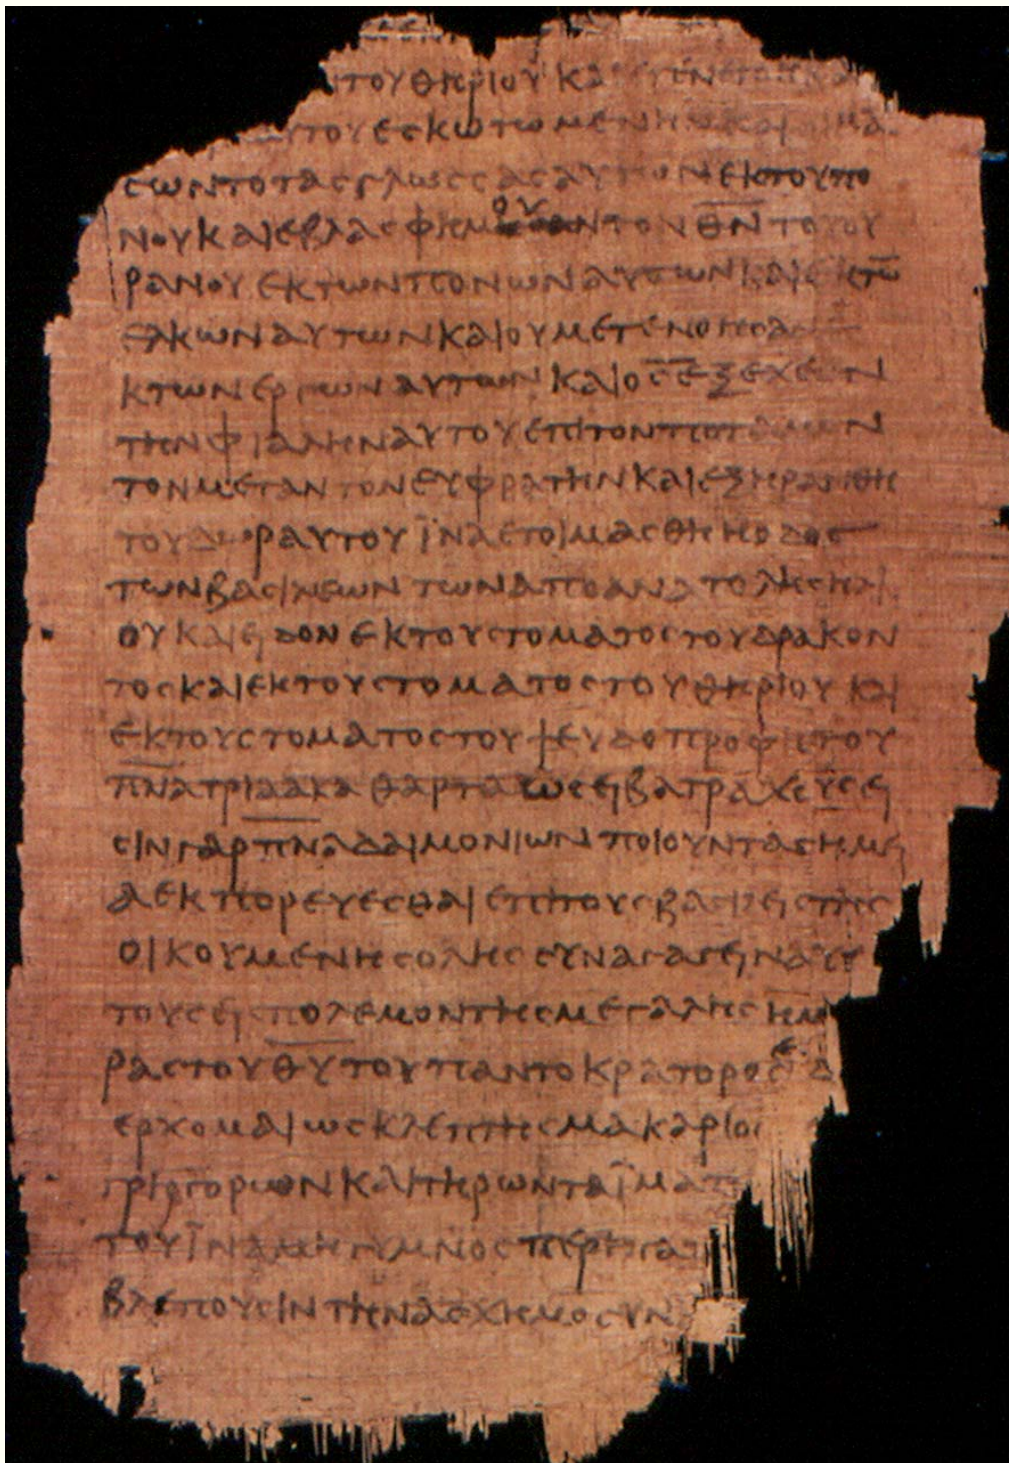 του θηριου και εγενετο η βα
αυτου εσκωτωμενη και εμα
σωντο τας γλωσσας αυτων εκ του πο
νου και εβλασφημουν τον θ̅ν̅ του ου
ρανου εκ των πονων αυτων και εκ τω̅
ελκων αυτων και ου μετενοησα
κ των εργων αυτων και ο ς̅ εξεχεεν
την φιαλην αυτου επι τον ποταμον
τον μεγαν τον ευφρατην και εξηρανθη
το υδωρ αυτου ϊνα ετοιμασθη η οδος
των βασιλεων των απο ανατολης ηλι
ου και ειδον εκ του στοματος του δρακον
τος και εκ του στοματος του θηριου και
εκ του στοματος του ψευδοπροφητου
π̅ν̅α̅ τρια ακαθαρτα ωσει βατραχους ει
σιν γαρ π̅ν̅α̅ δαιμονιων ποιουντα σημει
α εκπορευεσθαι επι τους βασιλεις της
οικουμενης ολης συναγαγειν αυ
τους εις πολεμον της μεγαλης ημε
ρας του θ̅υ̅ του παντοκρατορος ιδ
ερχομαι ως κλεπτης μακαριος
γρηγορων και τηρων τα ϊματ
του ϊνα μη γυμνος περιπατη
βλεπουσιν την ασχημοσυν